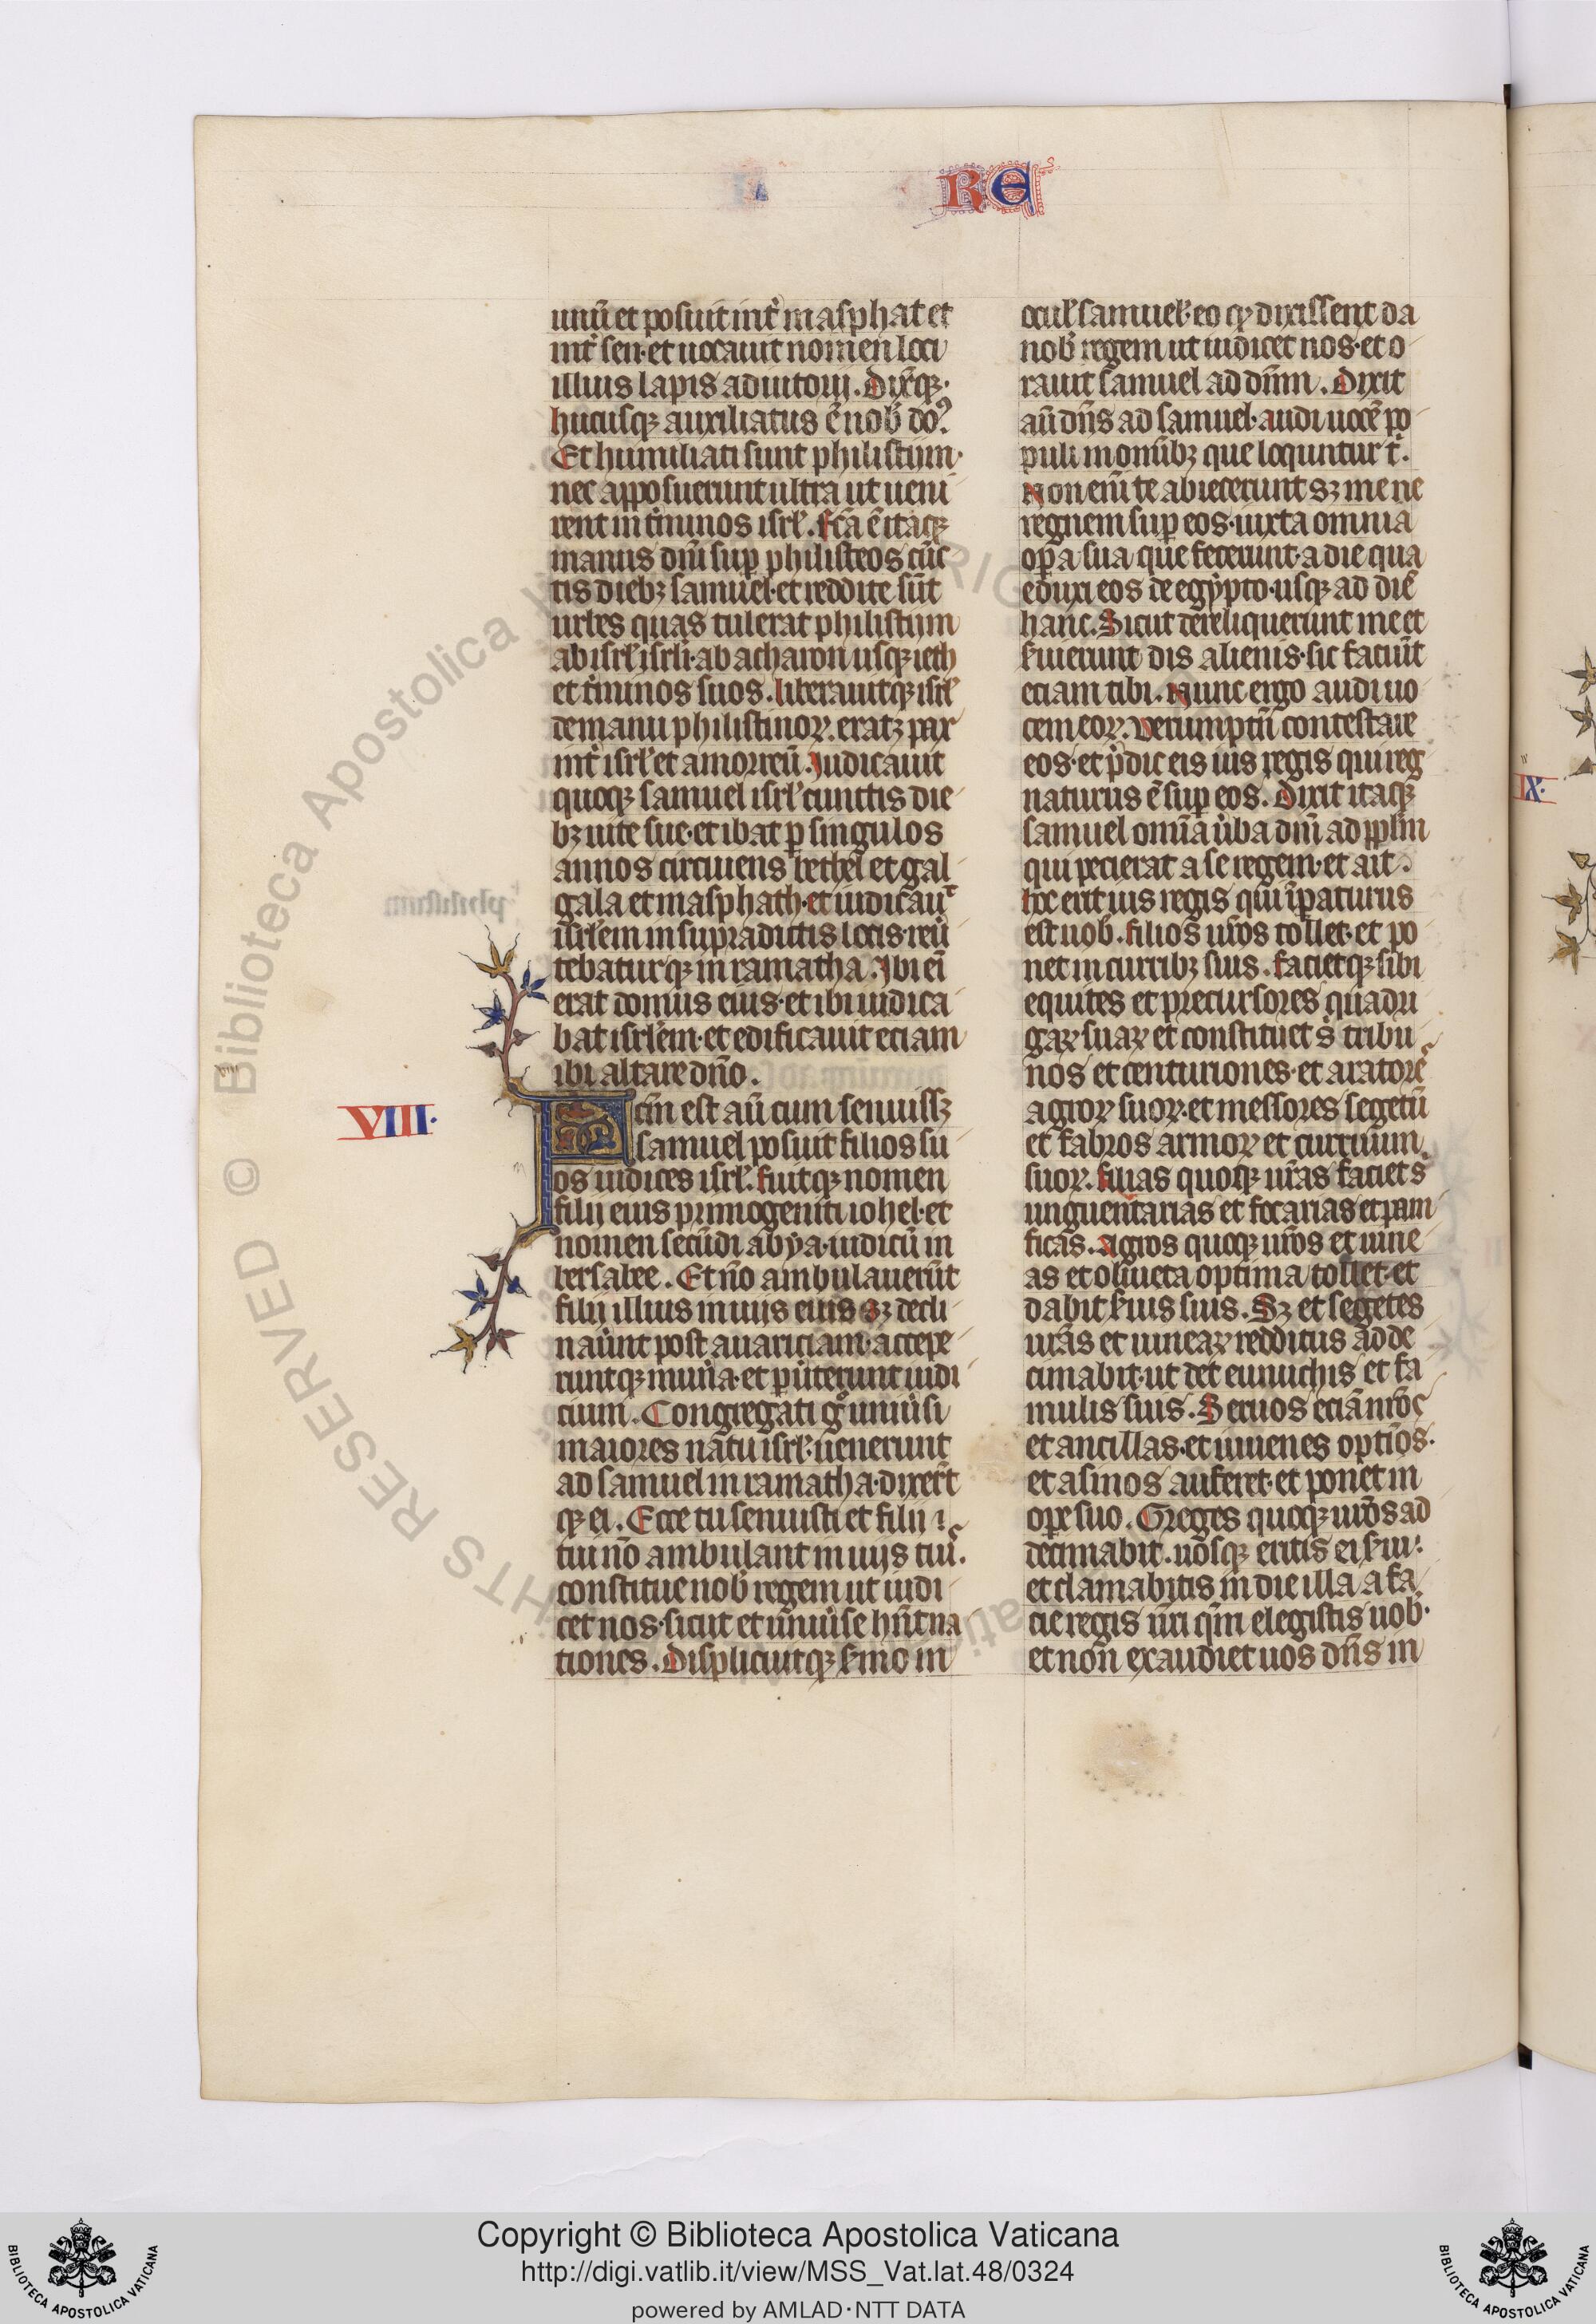 RE
unū et posuit int̾ masphat et
int̾ sen· et uocauit nomen loci
illius lapis adiutorij. Dixitq̄ꝫ·
hucusqꝫ auxiliatus ē nob̄ doꝰ.
Et humiliati sunt philistijm·
nec apposuerunt ultra ut ueni
rent in t̾minos isrl̄. Fcā ē itaqꝫ
manus dn̄i sup̱ philisteos cūc
tis diebꝫ samuel· et reddite sūt
urbes quas tulerat philistijm
ab isrl̄ isrl̄i· ab acharon usqꝫ ieth
et t̾minos suos. liberauitqꝫ isrl̄
de manu philistinoꝝ. eratqꝫ pax
int̾ isrl̄ et amorreū. Iudicauit
quoqꝫ samuel isrl̄ cunctis die
bꝫ uite sue· et ibat ꝑ singulos
annos circuiens bethel et gal
gala et masphath· et iudicauͭ
isrl̄em in supradictis locis· reū
tebaturqꝫ in ramatha. Ibi ei̅
erat domus eius· et ibi iudica
bat isrl̄em· et edificauit eciam
ibi altare dn̄o.
VIII·
Fcm̄ est aū cum senuissꝫ
samuel posuit filios su
os iudices isrl̄. fuitqꝫ nomen
filij eius primogeniti iohel· et
nomen secūdi abya· iudicū in
bersabee. Et nō ambulauerūt
filij illius in uijs eius sꝫ decli
nau̾nt post auariciam· accepe
runtqꝫ mun̾a· et ꝑu̾terunt iudi
cium. Congregati gͦ uniu̾si
maiores natu isrl̄· uenerunt
ad samuel in ramatha· dixer̄t
qꝫ ei. Ecce tu senuisti et filij
tui nō ambulant in uijs tuis.
constitue nob̄ regem ut iudi
cet nos· sicut et uniu̾se hn̄t na
tiones. Displicuitqꝫ s̾mo in
ocul̄ samuel̄· eo ꝙ dixissent da
nob̄ regem ut iudicet nos· et o
rauit samuel ad dn̄m. Dixit
aū dn̄s ad samuel· audi uocē po
puli in om̄ibꝫ que loquntur t̾.
Non eni̅ te abiecerunt sꝫ me ne
regnem sup̱ eos· iuxta omnia
oꝑa sua que fecerunt· a die qua
eduxi eos de egypto· usqꝫ ad diē
hanc. Sicut dereliquerunt me et
s̾uierunt dis alienis· sic faciūt
eciam tibi. Nunc ergo audi uo
cem eoꝝ. Verumptn̄ contestare
eos· et p̾dic eis ius regis qui reg
naturus ē sup̱ eos. Dixit itaqꝫ
samuel om̄ia u̾ba dn̄i ad ppl̄m
qui pecierat a se regem· et ait.
hoc erit ius regis qui im̄paturus
est uob̄. filios ur̄os tollet· et po
net in curribꝫ suis. facietqꝫ sibi
equites et precursores quadri
gaꝝ suaꝝ et constituet s̾ tribu
nos et centuriones· et aratores
agroꝝ suoꝝ· et messores segetū
et fabros armoꝝ et curruum
suoꝝ. filias quoqꝫ ur̄as faciet s̾
unguentarias et focarias et pani
ficas. Agros quoqꝫ ur̄os et uine
as et oliueta optima tollet· et
dabit s̾uis suis. Sꝫ et segetes
ur̄as et uineaꝝ redditus adde
cimabit· ut det eunuchis et fa
mulis suis. Seruos eciā ur̄os
et ancillas· et iuuenes optīos·
et asinos auferet· et ponet in
oꝑe suo. Greges quoqꝫ ur̄os ad
decimabit· uosqꝫ eritis ei s̾ui:
et clamabitis in die illa a fa
cie regis ur̄i qm̄ elegistis uob̄·
et non exaudiet uos dn̄s in
IX·
© Biblioteca Apostolica Vaticana
Copyright © Biblioteca Apostolica Vaticana
http://digi.vatlib.it/view/MSS_Vat.lat.48/0324
powered by AMLAD·NTT DATA
BIBLIOTECA APOSTOLICA VATICANA
BIBLIOTECA APOSTOLICA VATICANA